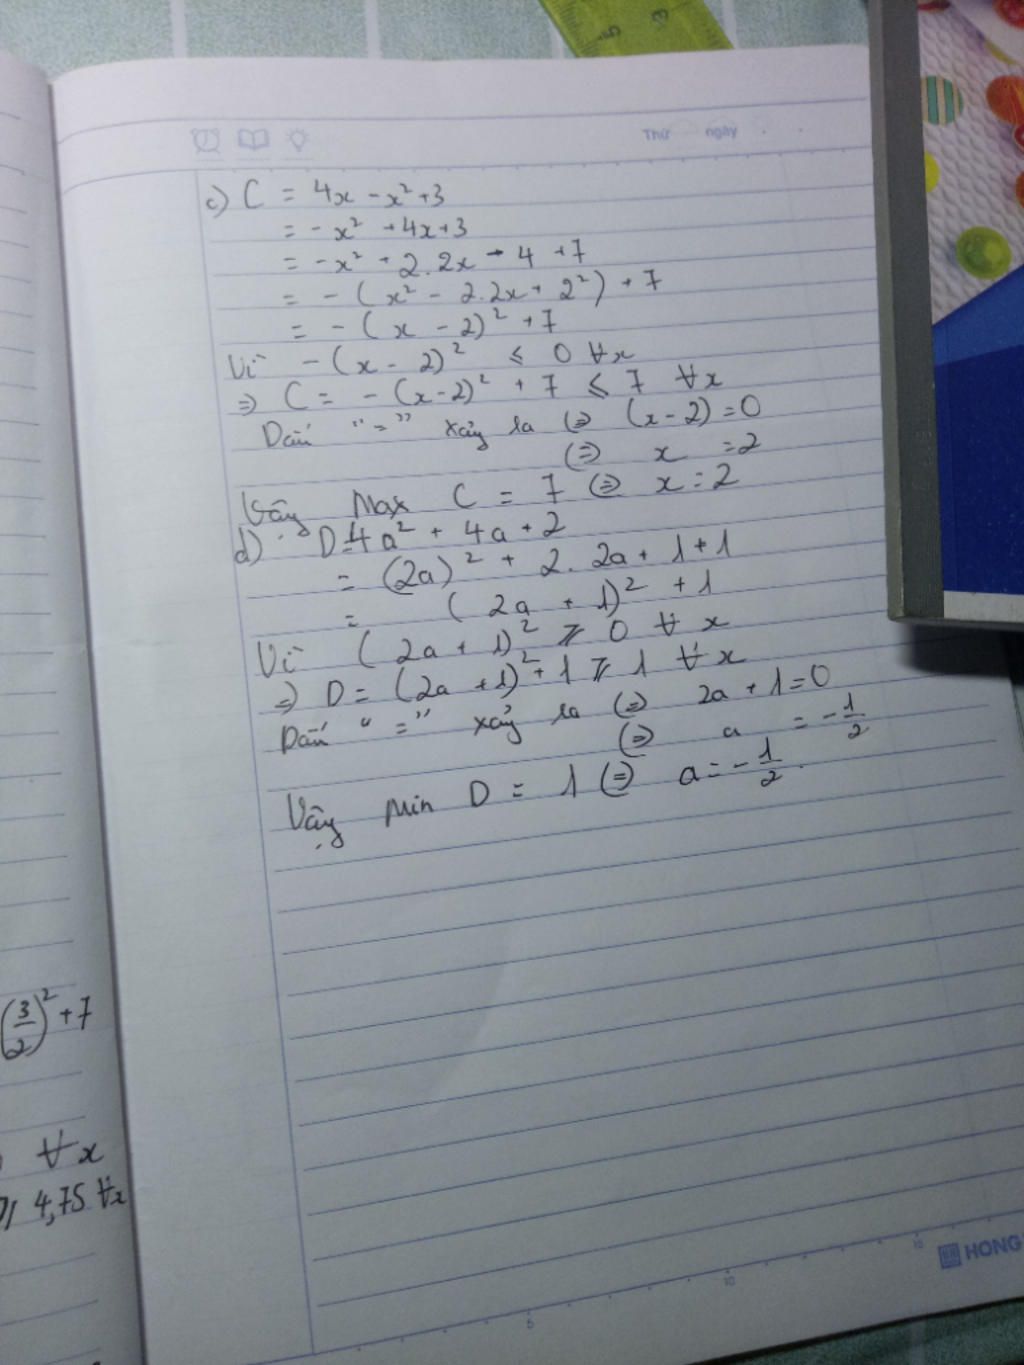 Thứ ngày
c) C = 4x - x² + 3
= - x² + 4x + 3
= - x² + 2.2x - 4 + 7
= - (x² - 2.2x + 2²) + 7
= - (x - 2)² + 7
Vì - (x - 2)² ≤ 0 ∀x
⇒ C = - (x - 2)² + 7 ≤ 7 ∀x
Dấu "=" xảy ra ⇔ (x - 2) = 0
⇔ x = 2
Vậy Max C = 7 ⇔ x = 2
d) D = 4a² + 4a + 2
= (2a)² + 2.2a + 1 + 1
= (2a + 1)² + 1
Vì (2a + 1)² ≥ 0 ∀ x
⇒ D = (2a + 1)² + 1 ≥ 1 ∀ x
Dấu "=" xảy ra ⇔ 2a + 1 = 0
⇔ a = - 1/2
Vậy Min D = 1 ⇔ a = - 1/2.
(3/2)² + 7
∀x
4,75 ∀x
5
10
15
HONG
5
3